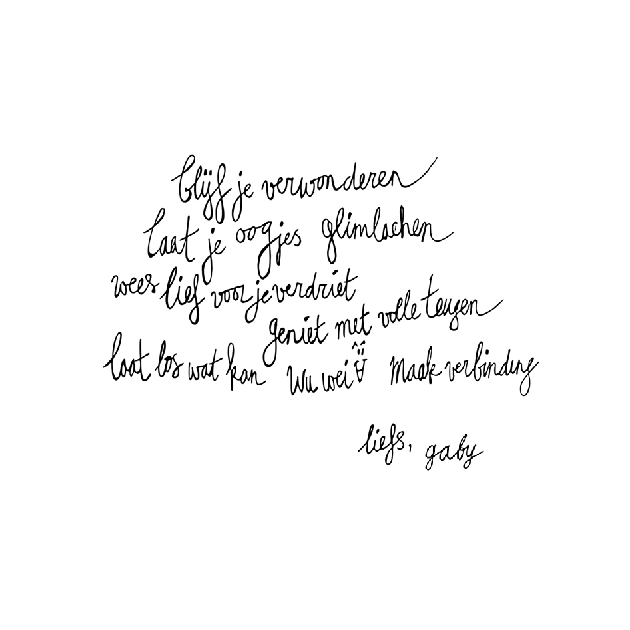 blijf je verwonderen
laat je oogjes glimlachen
wees lief voor je verdriet
geniet met volle teugen
laat los wat kan Wu wei Maak verbinding
liefs, gaby